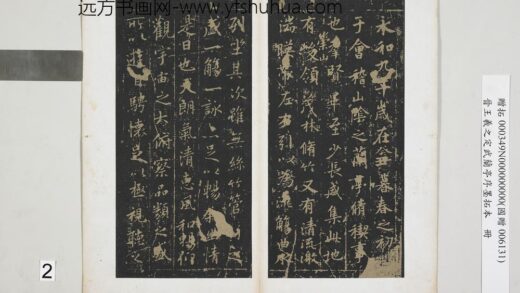 远方书画网-www.yfshuhua.com
永和九年歲在癸丑暮春之初
于會稽山陰之蘭亭脩稧事
也群賢畢至少長咸集此地
有峻領茂林脩竹又有清流激
湍暎帶左右引以為流觴曲水
列坐其次雖無絲竹管弦之
盛一觴一詠亦足以暢敘幽情
是日也天朗氣清惠風和暢仰
觀宇宙之大俯察品類之盛
所以遊目騁懷足以極視聽之
贈拓 000349N000000000(國贈 006131)
晉王羲之定武蘭亭序墨拓本 冊
2